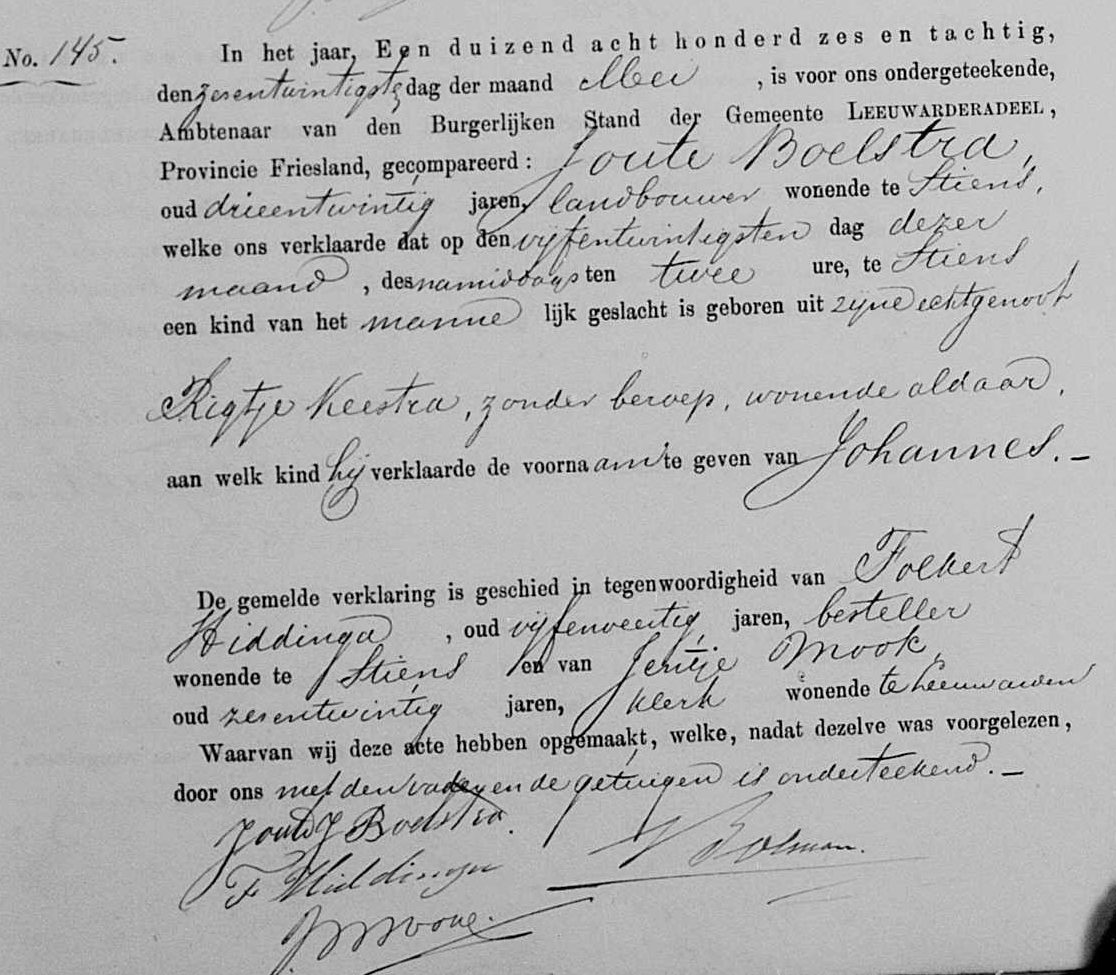 No. 145.
In het jaar, Een duizend acht honderd zes en tachtig,
den zesentwintigste dag der maand Mei , is voor ons ondergeteekende,
Ambtenaar van den Burgerlijken Stand der Gemeente LEEUWARDERADEEL,
Provincie Friesland, gecompareerd: Joute Boelstra,
oud drieentwintig jaren, landbouwer wonende te Stiens,
welke ons verklaarde dat op den vijfentwintigsten dag dezer
maand , des namiddags ten twee ure, te Stiens
een kind van het manne lijk geslacht is geboren uit zijne echtgenoot
Rigtje Keestra, zonder beroep, wonende aldaar,
aan welk kind hij verklaarde de voornaam te geven van Johannes. –
De gemelde verklaring is geschied in tegenwoordigheid van Folkert
Hiddinga , oud vijfenveertig jaren, besteller
wonende te Stiens en van Jentje Mook,
oud zesentwintig jaren, klerk wonende te Leeuwarden
Waarvan wij deze acte hebben opgemaakt, welke, nadat dezelve was voorgelezen,
door ons met den vader en de getuigen is onderteekend. –
Joute J Boelstra.
F Hiddinga
Bolman.